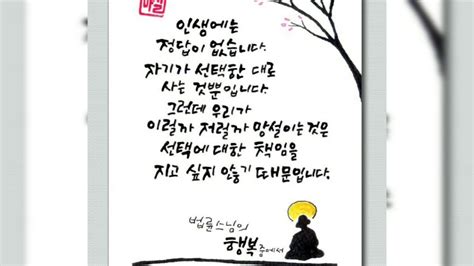 인생에는
정답이 없습니다.
자기가 선택한 대로
사는 것뿐입니다.
그런데 우리가
이럴까 저럴까 망설이는 것은
선택에 대한 책임을
지고 싶지 않기 때문입니다.
법륜스님의
행복 중에서